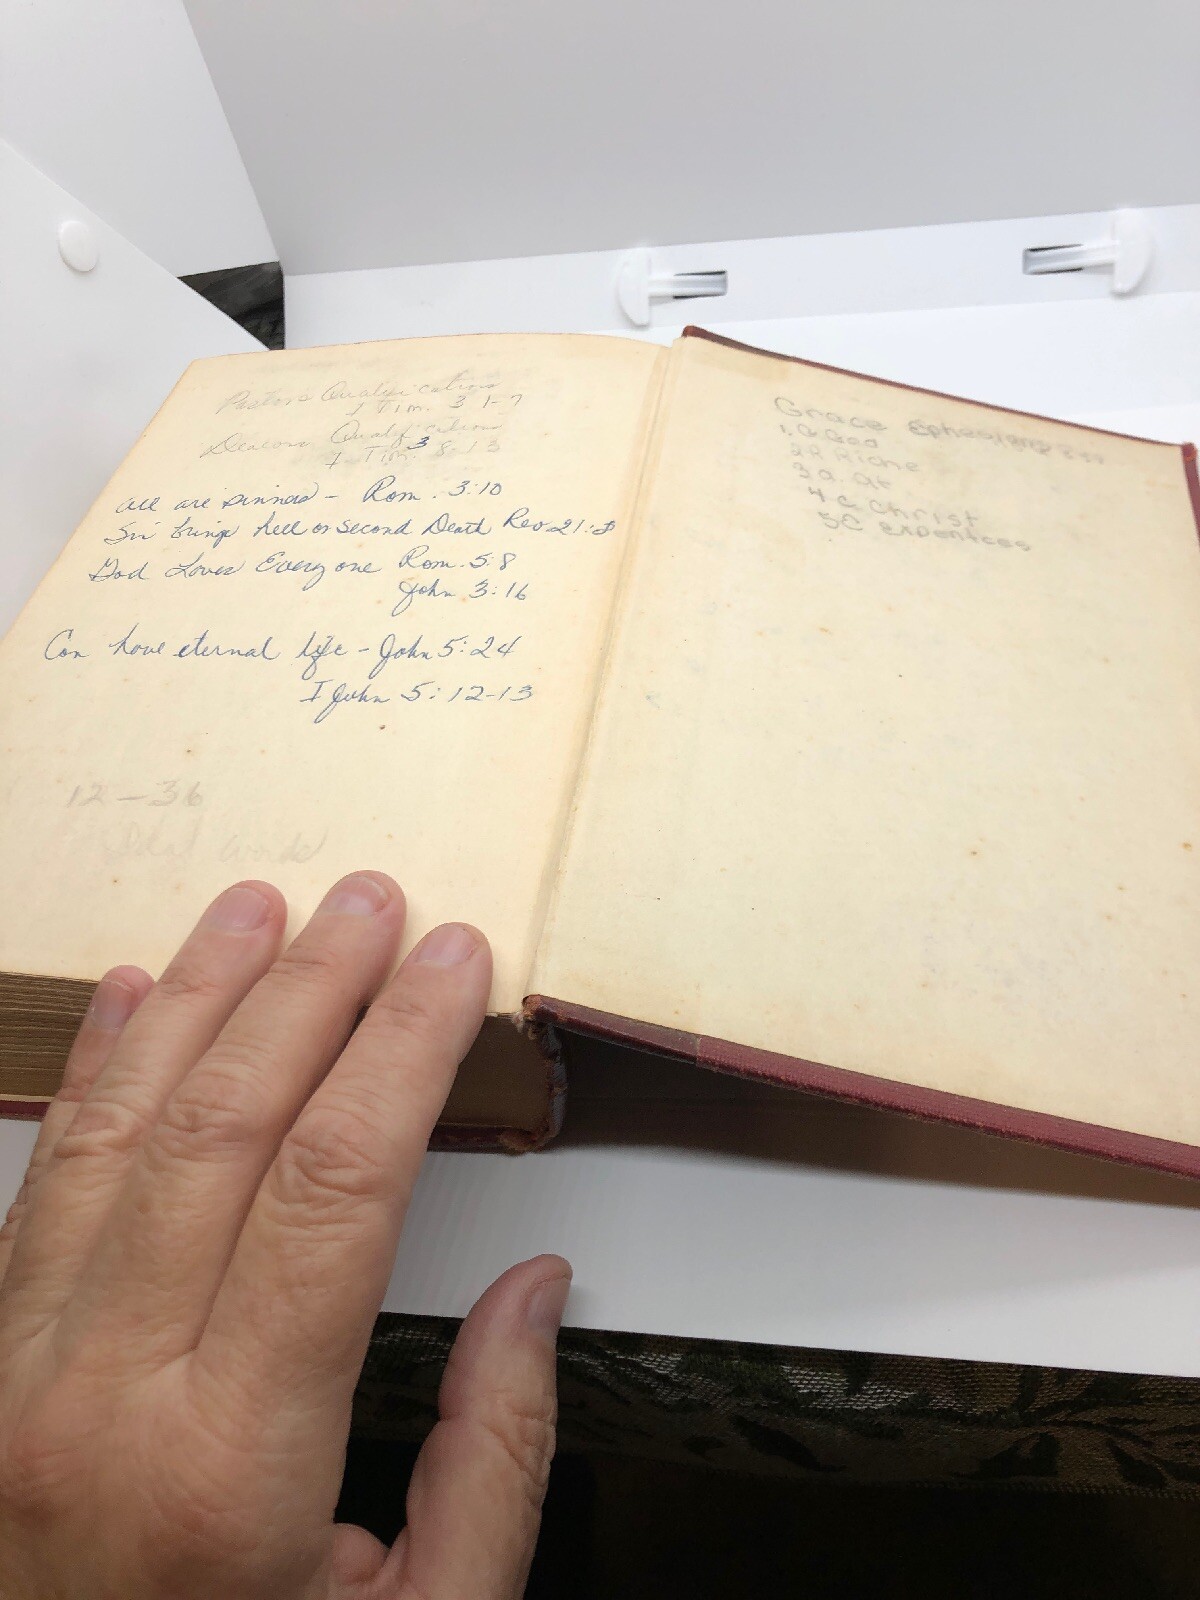 Pastors Qualifications
I Tim. 3 1-7
Deacons Qualifications
I Tim. 3 8-13
all are sinners - Rom. 3:10
Sin brings hell or second Death Rev 21:8
God Loves Everyone Rom. 5:8
John 3:16
Can have eternal life - John 5:24
I John 5:12-13
12-36
words
Grace Ephesians
1. God
Riche
3 a. At
4 c Christ
5 C expences